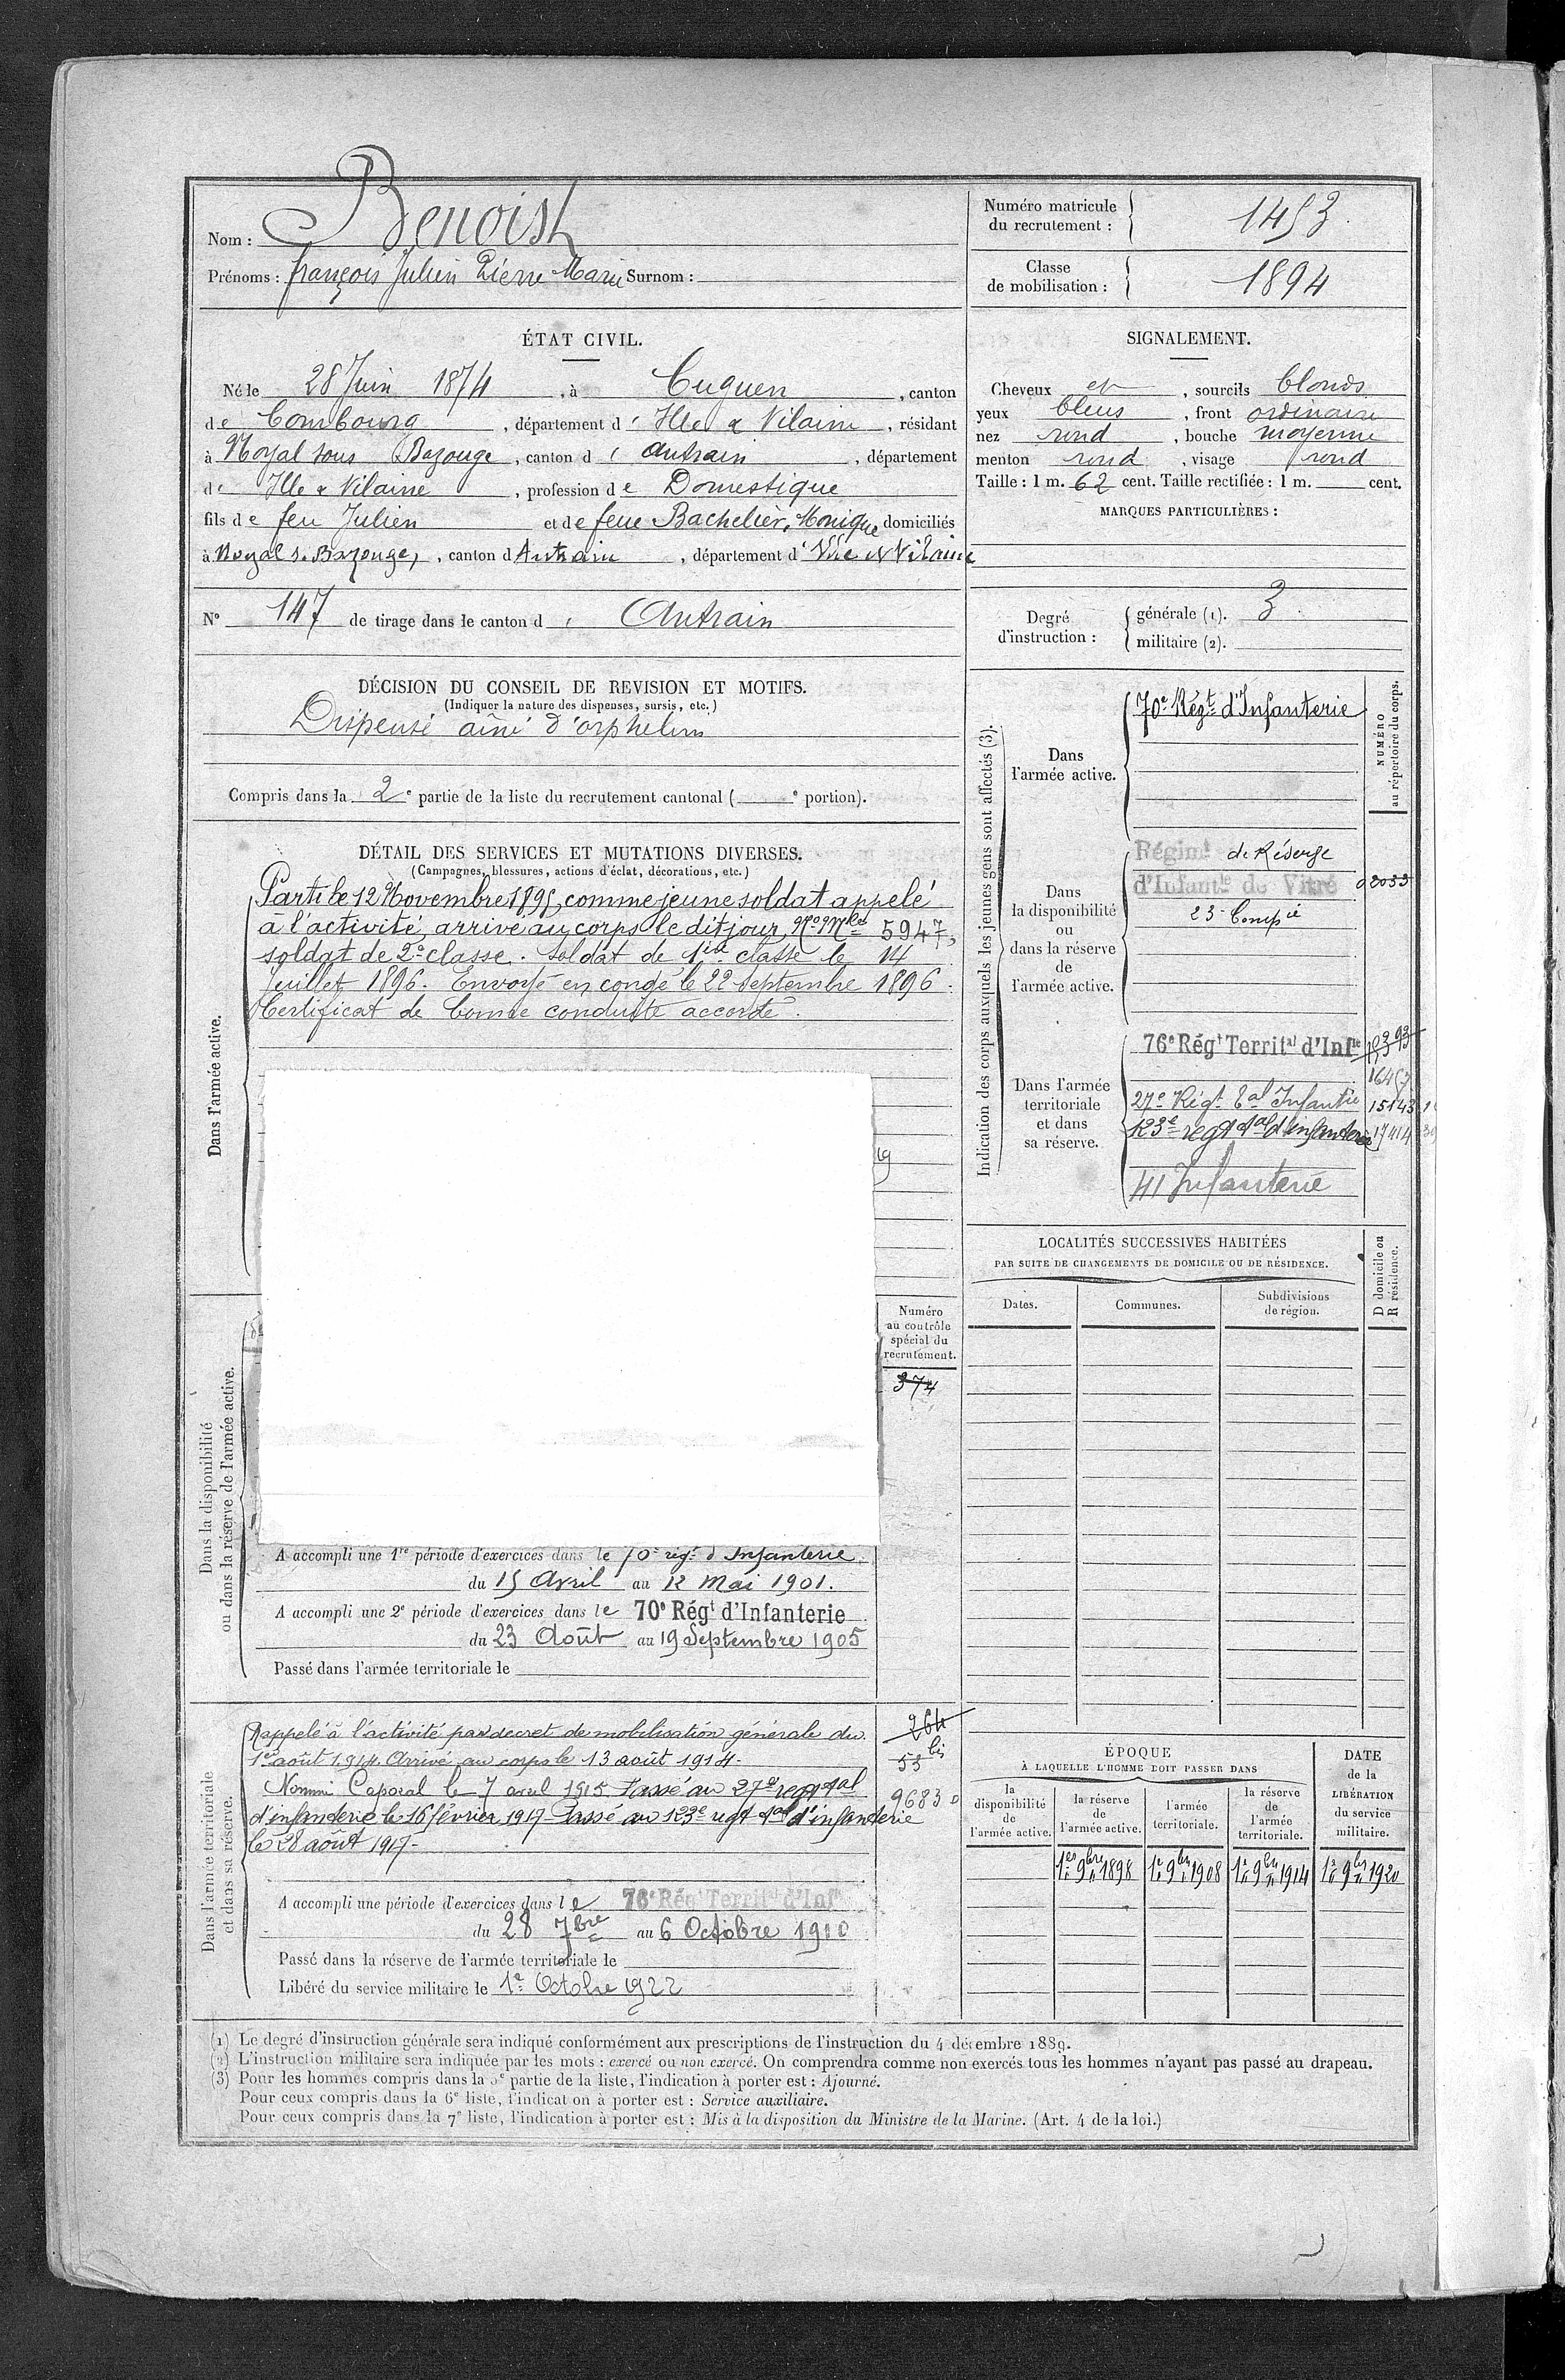 Nom : Benoist
Prénoms : François Julien Pierre Marie Surnom :
Numéro matricule du recrutement : 1453
Classe de mobilisation : 1894
ÉTAT CIVIL.
Né le 28 Juin 1874, à Cuguen, canton
de Combourg, département d'Ille & Vilaine, résidant
à Noyal sous Bazouge, canton d'Antrain, département
d'Ille & Vilaine, profession de Domestique
fils de feu Julien et de feue Bachelier, Monique domiciliés
à Noyal s. Bazouge, canton d'Antrain, département d'Ille et Vilaine
N° 147 de tirage dans le canton d'Antrain
SIGNALEMENT.
Cheveux et, sourcils blonds
yeux bleus, front ordinaire
nez rond, bouche moyenne
menton rond, visage rond
Taille : 1 m. 62 cent. Taille rectifiée : 1 m. cent.
MARQUES PARTICULIÈRES :
Degré d'instruction :
générale (1). 3
militaire (2).
DÉCISION DU CONSEIL DE REVISION ET MOTIFS.
(Indiquer la nature des dispenses, sursis, etc.)
Dispensé aîné d'orphelins
Compris dans la 2e partie de la liste du recrutement cantonal ( e portion).
DÉTAIL DES SERVICES ET MUTATIONS DIVERSES.
(Campagnes, blessures, actions d'éclat, décorations, etc.)
Dans l'armée active.
Parti le 12 Novembre 1895, comme jeune soldat appelé
à l'activité, arrivé au corps le dit jour, No Mle 5947,
soldat de 2e classe. Soldat de 1ère classe le 14
Juillet 1896. Envoyé en congé le 22 Septembre 1896.
Certificat de bonne conduite accordé.
Indication des corps auxquels les jeunes gens sont affectés (3).
NUMÉRO au répertoire du corps.
Dans l'armée active.
70e Régt d'Infanterie
Dans la disponibilité ou dans la réserve de l'armée active.
Régimt de Réserve
d'Infantie de Vitré 02033
23 Compie
Dans l'armée territoriale et dans sa réserve.
76e Régt Territal d'Infie
27e Régt tal Infantie 15143
123e regt tal d'infanterie 17414
41 Infanterie
LOCALITÉS SUCCESSIVES HABITÉES
PAR SUITE DE CHANGEMENTS DE DOMICILE OU DE RÉSIDENCE.
Dates.
Communes.
Subdivisions de région.
D domicile ou R résidence.
Dans la disponibilité ou dans la réserve de l'armée active.
Numéro au contrôle spécial du recrutement.
374
A accompli une 1re période d'exercices dans le 70e régt d'Infanterie
du 15 Avril au 12 Mai 1901.
A accompli une 2e période d'exercices dans le 70e Régt d'Infanterie
du 23 Août au 19 Septembre 1905
Passé dans l'armée territoriale le
Dans l'armée territoriale et dans sa réserve.
Rappelé à l'activité par décret de mobilisation générale du
1er août 1914. Arrivé au corps le 13 août 1914.
Nommé Caporal le 7 avril 1915. Passé au 27e regt tal
d'infanterie le 16 février 1917 - Passé au 123e regt tal d'infanterie
le 28 août 1917 -
264
53 bis
9683
A accompli une période d'exercices dans le 76e Régt Territal d'Infie
du 28 7bre au 6 Octobre 1910
Passé dans la réserve de l'armée territoriale le
Libéré du service militaire le 1er Octobre 1922
ÉPOQUE
À LAQUELLE L'HOMME DOIT PASSER DANS
la disponibilité de l'armée active.
la réserve de l'armée active.
l'armée territoriale.
la réserve de l'armée territoriale.
DATE de la LIBÉRATION du service militaire.
1er 9bre 1898
1er 9bre 1908
1er 9bre 1914
1er 9bre 1920
(1) Le degré d'instruction générale sera indiqué conformément aux prescriptions de l'instruction du 4 décembre 1889.
(2) L'instruction militaire sera indiquée par les mots : exercé ou non exercé. On comprendra comme non exercés tous les hommes n'ayant pas passé au drapeau.
(3) Pour les hommes compris dans la 5e partie de la liste, l'indication à porter est : Ajourné.
Pour ceux compris dans la 6e liste, l'indication à porter est : Service auxiliaire.
Pour ceux compris dans la 7e liste, l'indication à porter est : Mis à la disposition du Ministre de la Marine. (Art. 4 de la loi.)